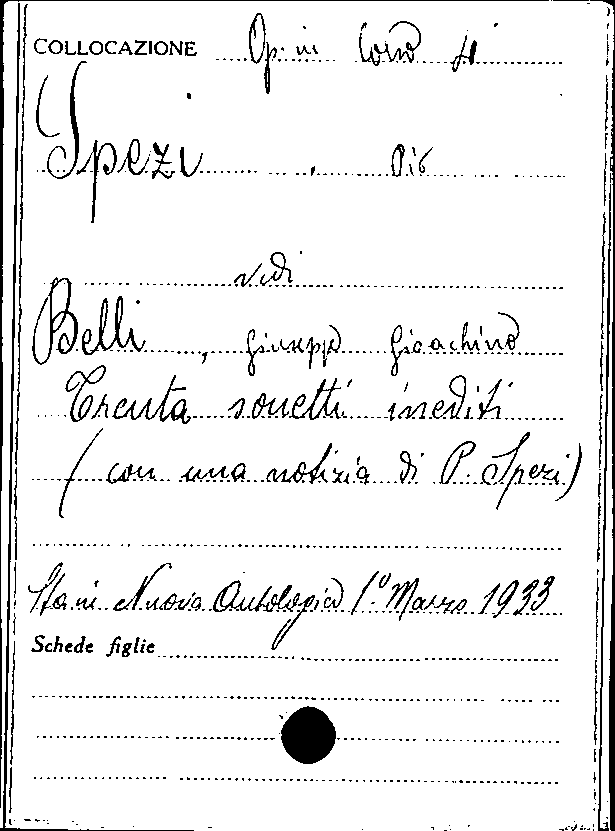 COLLOCAZIONE Op. in Corso 41
Spezi, Pio
vedi
Belli, Giuseppe Gioachino
Trenta sonetti inediti
(con una notizia di P. Spezi)
Sta in Nuova Antologia 1.º Marzo 1933
Schede figlie